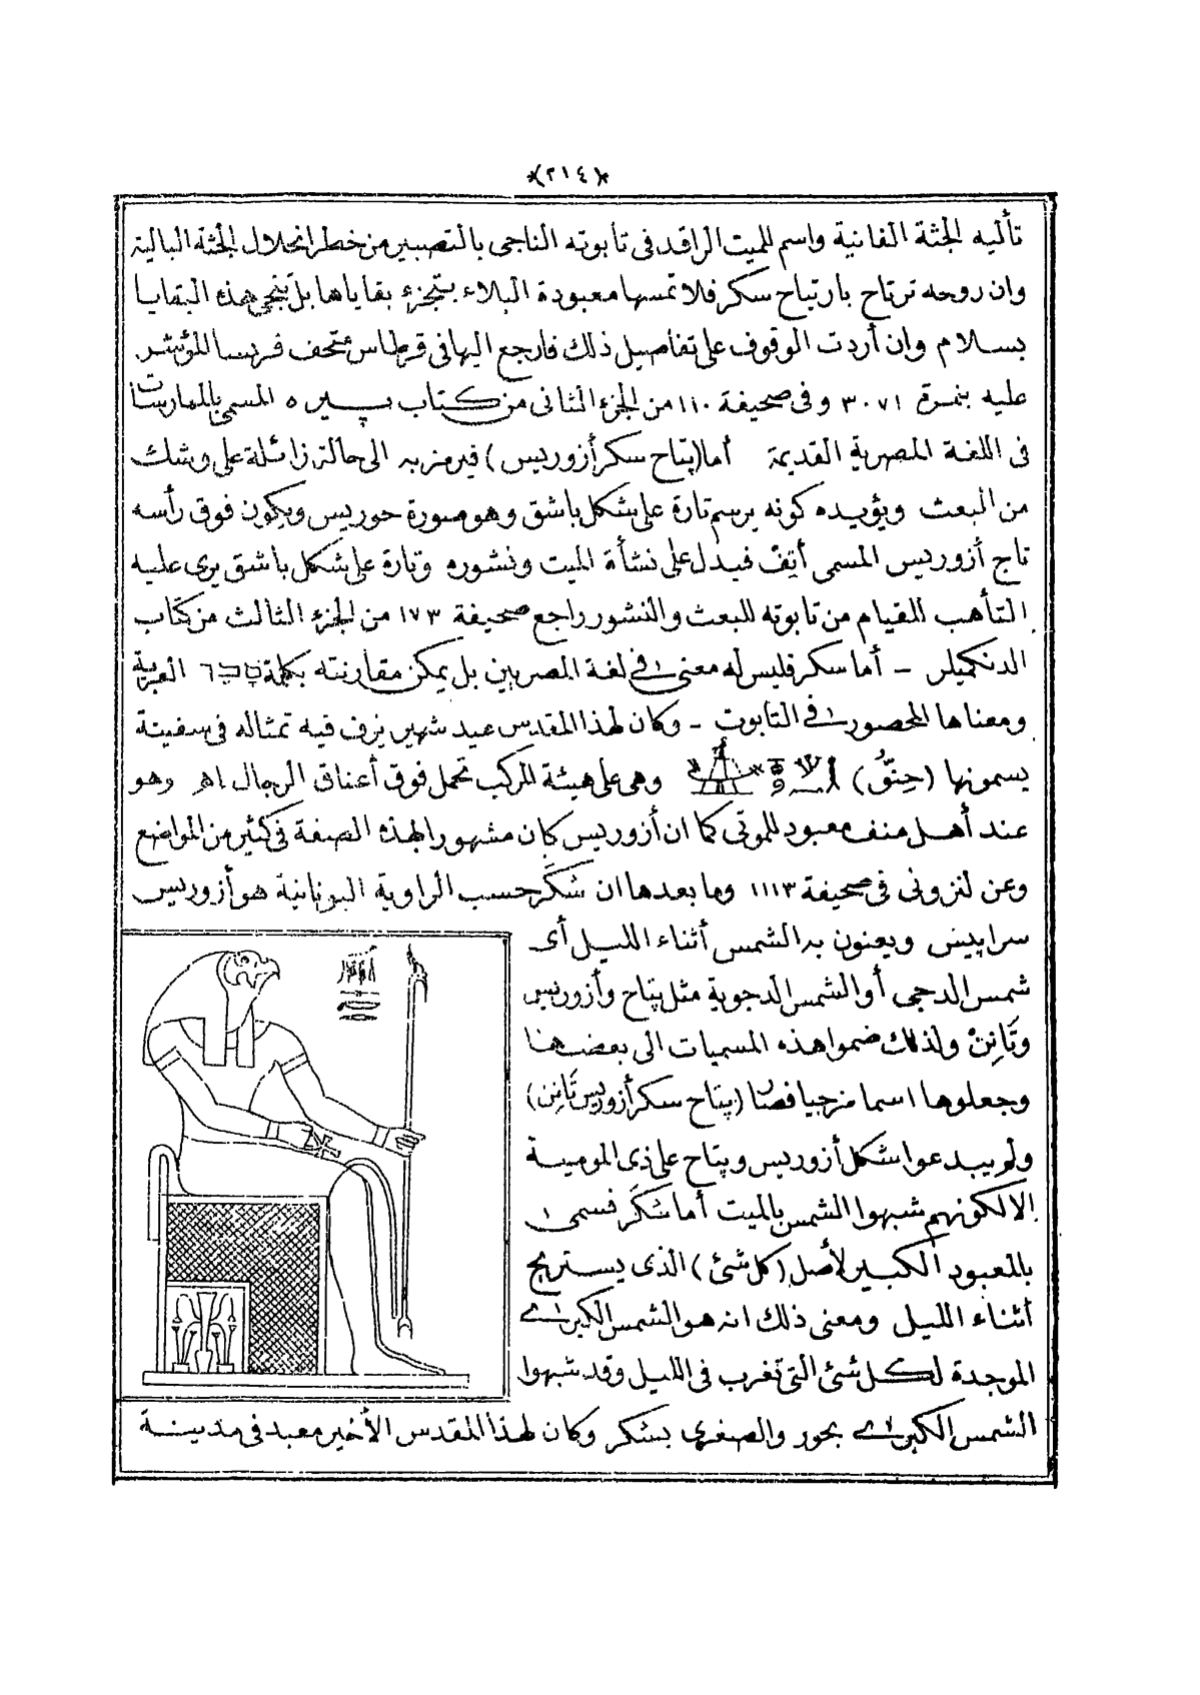 *(٢١٤)*
تأليه الجثة الفانية واسم للميت الراقد فى تابوته الناجى بالتصبير من خطر انحلال الجثة البالية
وان روحه ترتاح بارتياح سكر فلا تمسها معبودة البلاء بتجزء بقاياها بل تنجى هذه البقايا
بسلام وان أردت الوقوف على تفاصيل ذلك فارجع اليها فى قرطاس متحف فرنسا المؤشر
عليه بنمرة ٣٠٧١ وفى صحيفة ١١٠ من الجزء الثانى من كتاب پييره المسمى بالممارسات
فى اللغة المصرية القديمة أما (پتاح سكر أزوريس) فيرمز به الى حالة زائلة على وشك
من البعث ويؤيده كونه يرسم تارة على شكل باشق وهو صورة حوريس ويكون فوق رأسه
تاج أزوريس المسمى أتِف فيدل على نشأة الميت ونشوره وتارة على شكل باشق يرى عليه
التأهب للقيام من تابوته للبعث والنشور راجع صحيفة ١٧٣ من الجزء الثالث من كتاب
الدنكميلر – أما سكر فليس له معنى فى لغة المصريين بل يمكن مقارنته بكلمة العبرية
ومعناها المحصور فى التابوت – وكان لهذا المقدس عيد شهير يزف فيه تمثاله فى سفينة
يسمونها (حِنّقُ) وهى على هيئة المركب تحمل فوق أعناق الرجال اهـ وهو
عند أهل منف معبود للموتى كما ان أزوريس كان مشهورا بهذه الصفة فى كثير من المواضع
وعن لنزونى فى صحيفة ١١١٣ وما بعدها ان سَكَر حسب الراوية اليونانية هو أزوريس
سراپيس ويعنون به الشمس أثناء الليل أى
شمس الدجى أو الشمس الدجوية مثل پتاح وأزوريس
وتَانِنْ ولذلك ضموا هذه المسميات الى بعضها
وجعلوها اسما مزجيا فصار (پتاح سكر أزوريس تَانِن)
ولم يبدعوا شكل أزوريس وپتاح على ذى المومية
الا لكونهم شبهوا الشمس بالميت أما سَكَر فسمى
بالمعبود الكبير لأصل (كل شئ) الذى يستريح
أثناء الليل ومعنى ذلك انه هو الشمس الكبرى
الموجدة لكل شئ التى تغرب فى الليل وقد شبهوا
الشمس الكبرى بحور والصغرى بسكر وكان لهذا المقدس الأخير معبد فى مدينة